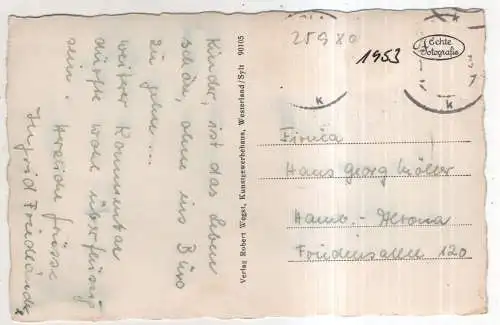 Kinder, ist das Leben
schön, ohne ins Büro
zu gehen...
weiterer Kommentar
dürfte wohl überflüssig
sein. Herzliche Grüsse
Ingrid Friedländer
Verlag Robert Wegst, Kunstgewerbehaus, Westerland/Sylt 90105
25980
1953
Echte
Fotografie
k
k
Firma
Hans Georg Möller
Hamb.-Altona
Friedensallee 120